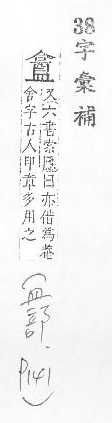 38字彙補
盦又六書索隱曰亦借為菴
舍字古人印章多用之
(皿部, P141)